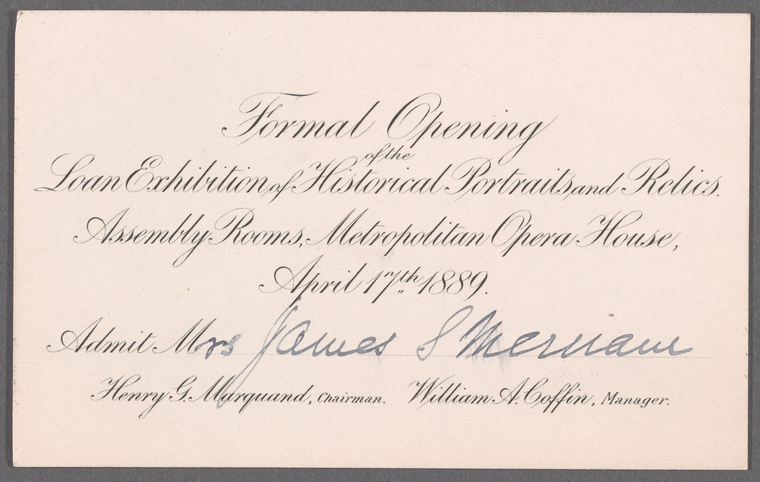 Formal Opening
of the
Loan Exhibition of Historical Portraits and Relics.
Assembly Rooms, Metropolitan Opera House,
April 17th 1889.
Admit Mrs James S Merriam
Henry G. Marquand, Chairman. William A. Coffin, Manager.